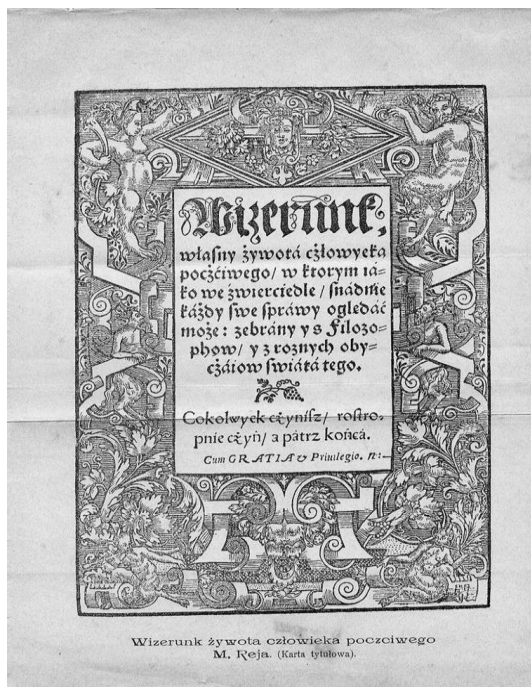 Wizerunk,
własny żywotá cżłowyeká
pocżćiwego/ w ktorym iá=
ko we źwierciedle/ snádnie
káżdy swe spráwy oględáć
może: zebrány y s Filozo=
phow/ y z roznych oby=
cżáiow swiátá tego.
Cokolwyek cżynisz/ rostro-
pnie cżyń/ a pátrz końcá.
Cum GRATIA & Priuilegio. n:
Wizerunk żywota człowieka poczciwego
M. Reja. (Karta tytułowa).